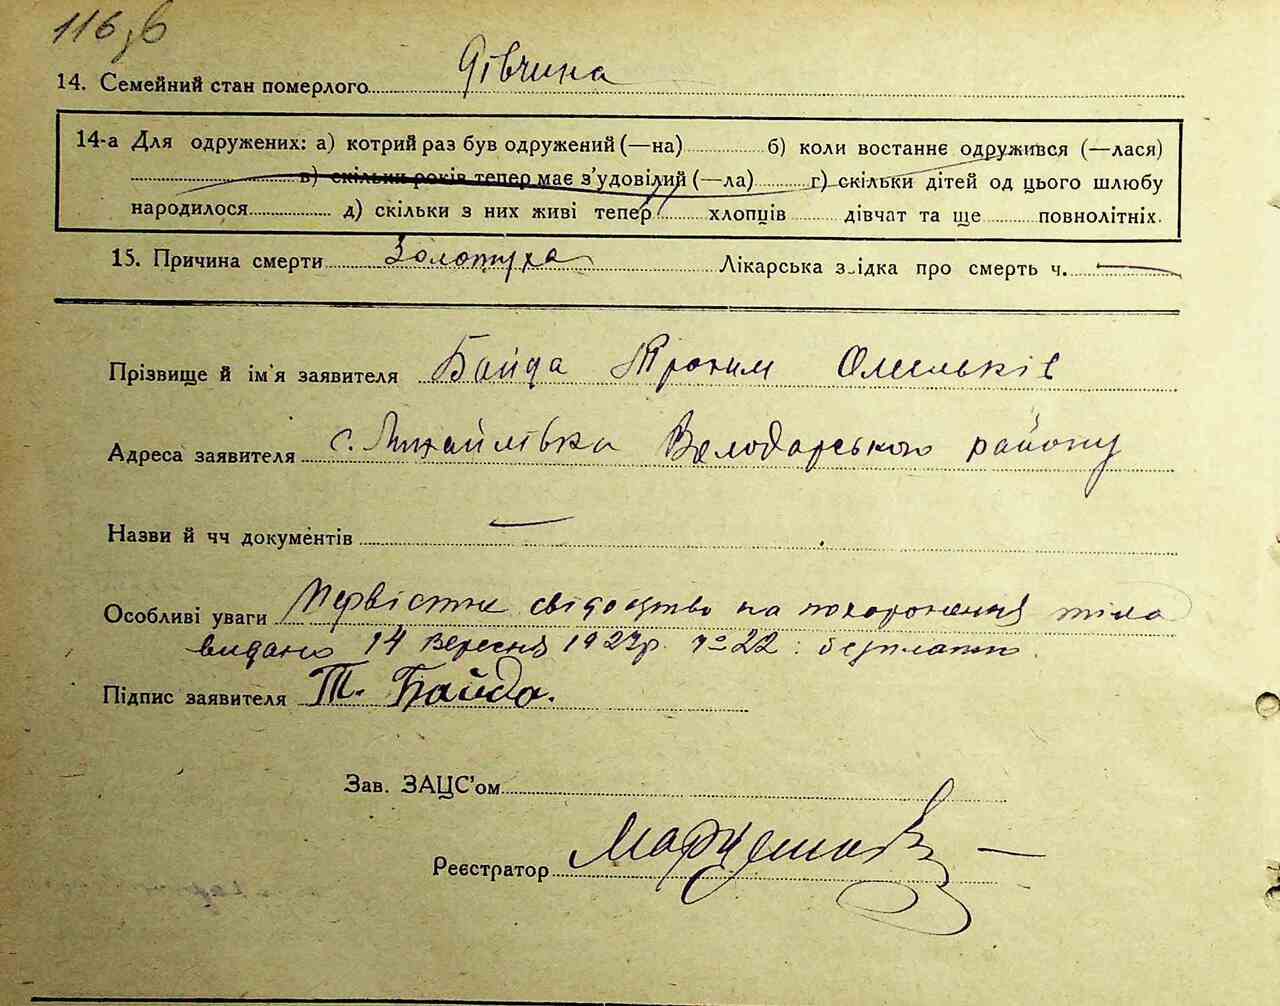 116 зв
14. Семейний стан померлого Дівчина
14-а Для одружених: а) котрий раз був одружений (—на) б) коли востаннє одружився (—лася)
в) скільки років тепер має з'удовілий (—ла) г) скільки дітей од цього шлюбу
народилося д) скільки з них живі тепер хлопців дівчат та ще повнолітніх.
15. Причина смерти Золотуха Лікарська з ідка про смерть ч. —
Прізвище й ім'я заявителя Байда Трохим Омельків
Адреса заявителя с. Михайлівка Володарського району
Назви й чч документів —
Особливі уваги Первістне свідоцтво на похоронення тіла
видано 14 вересня 1927р. № 22 : безплатно.
Підпис заявителя Т. Байда.
Зав. ЗАЦС'ом
Реєстратор